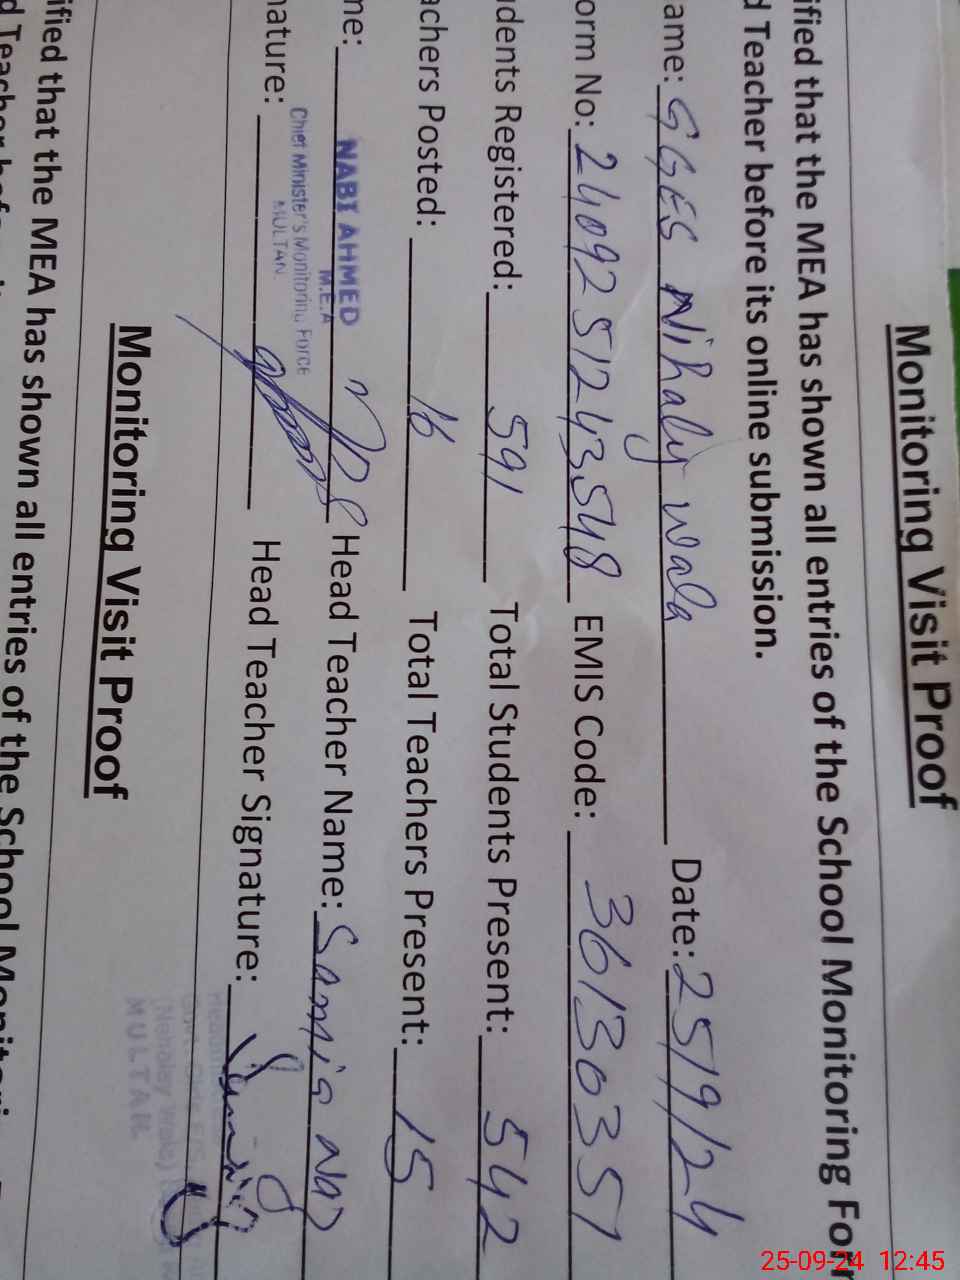 Monitoring Visit Proof
ified that the MEA has shown all entries of the School Monitoring For
d Teacher before its online submission.
ame: GGES Nihaly wala Date: 25/9/24
orm No: 24092 51243548 EMIS Code: 36130351
dents Registered: 591 Total Students Present: 542
achers Posted: 16 Total Teachers Present: 15
me: NABI AHMED Head Teacher Name: Samia Naz
M.E.A
Chief Minister's Monitoring Force
MULTAN.
nature: Head Teacher Signature:
(Nehaley Wala)
MULTAN
Monitoring Visit Proof
ified that the MEA has shown all entries of the School Monitori
d Teacher
25-09-24 12:45